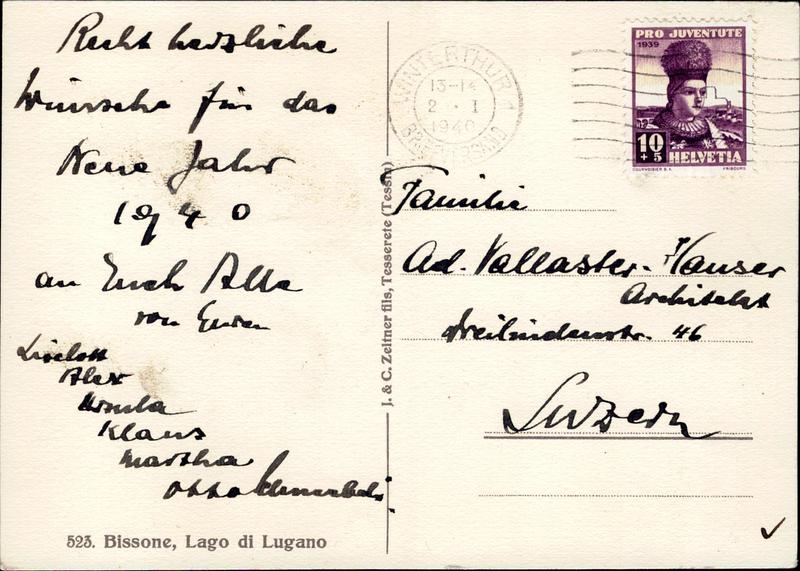 Recht herzliche
Wünsche für das
Neue Jahr
1940
an Euch Alle
von Euren
Liselott
Alex
Ursula
Klaus
Martha
Otto
523. Bissone, Lago di Lugano
J. & C. Zeitner fils, Tesserete (Tessin)
WINTERTHUR 1
13-14
2 · I
1940
BRIEFVERSAND
PRO JUVENTUTE
1939
10
+5
HELVETIA
COURVOISIER S.A. FRIBOURG
Familie
Ad. Vallaster-Hauser
Architekt
Dreilindenstr. 46
Luzern